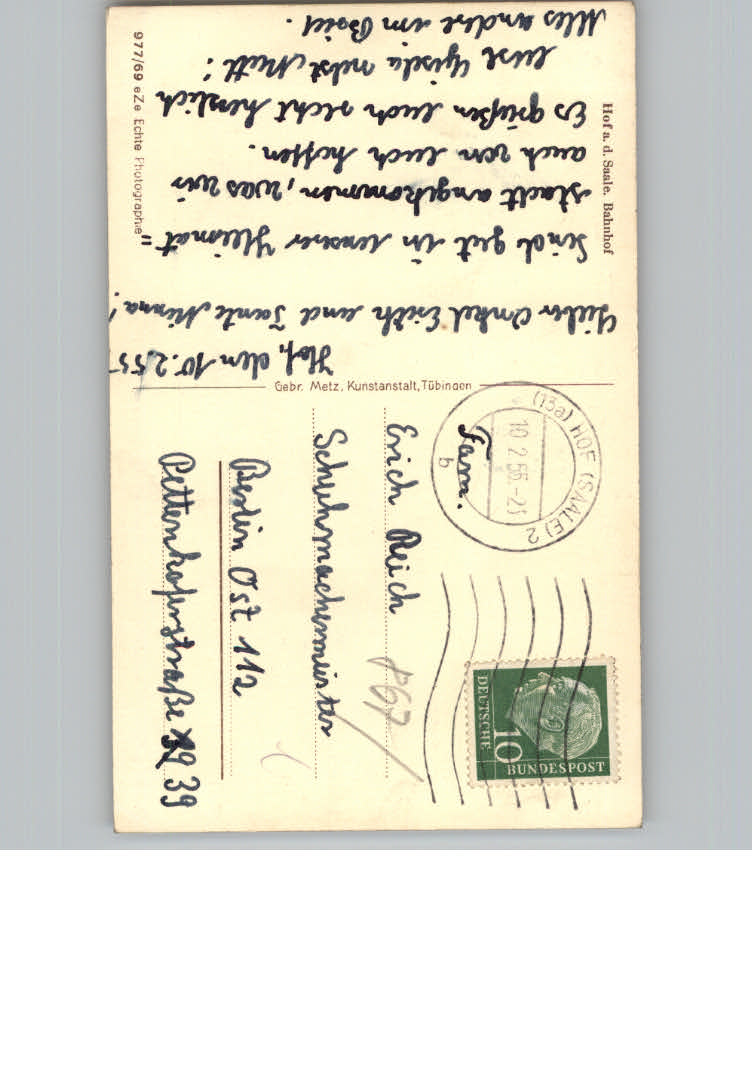 Hof, den 10.2.55
Lieber Onkel Erich und Tante Minna!
Sind gut in unserer Heimat=
stadt angekommen, was wir
auch von Euch hoffen.
Es grüßen Euch recht herzlich
Eure Gisela nebst Mutti!
Alles andere im Brief.
Hof a. d. Saale. Bahnhof
977/69 eZe Echte Photographie
Gebr. Metz, Kunstanstalt, Tübingen
(13a) HOF (SAALE) 2
10.2.55.-21
b
DEUTSCHE
BUNDESPOST
10
Fam.
Erich Reich
Schuhmachermeister
Berlin Ost 112
Pettenkoferstraße 39